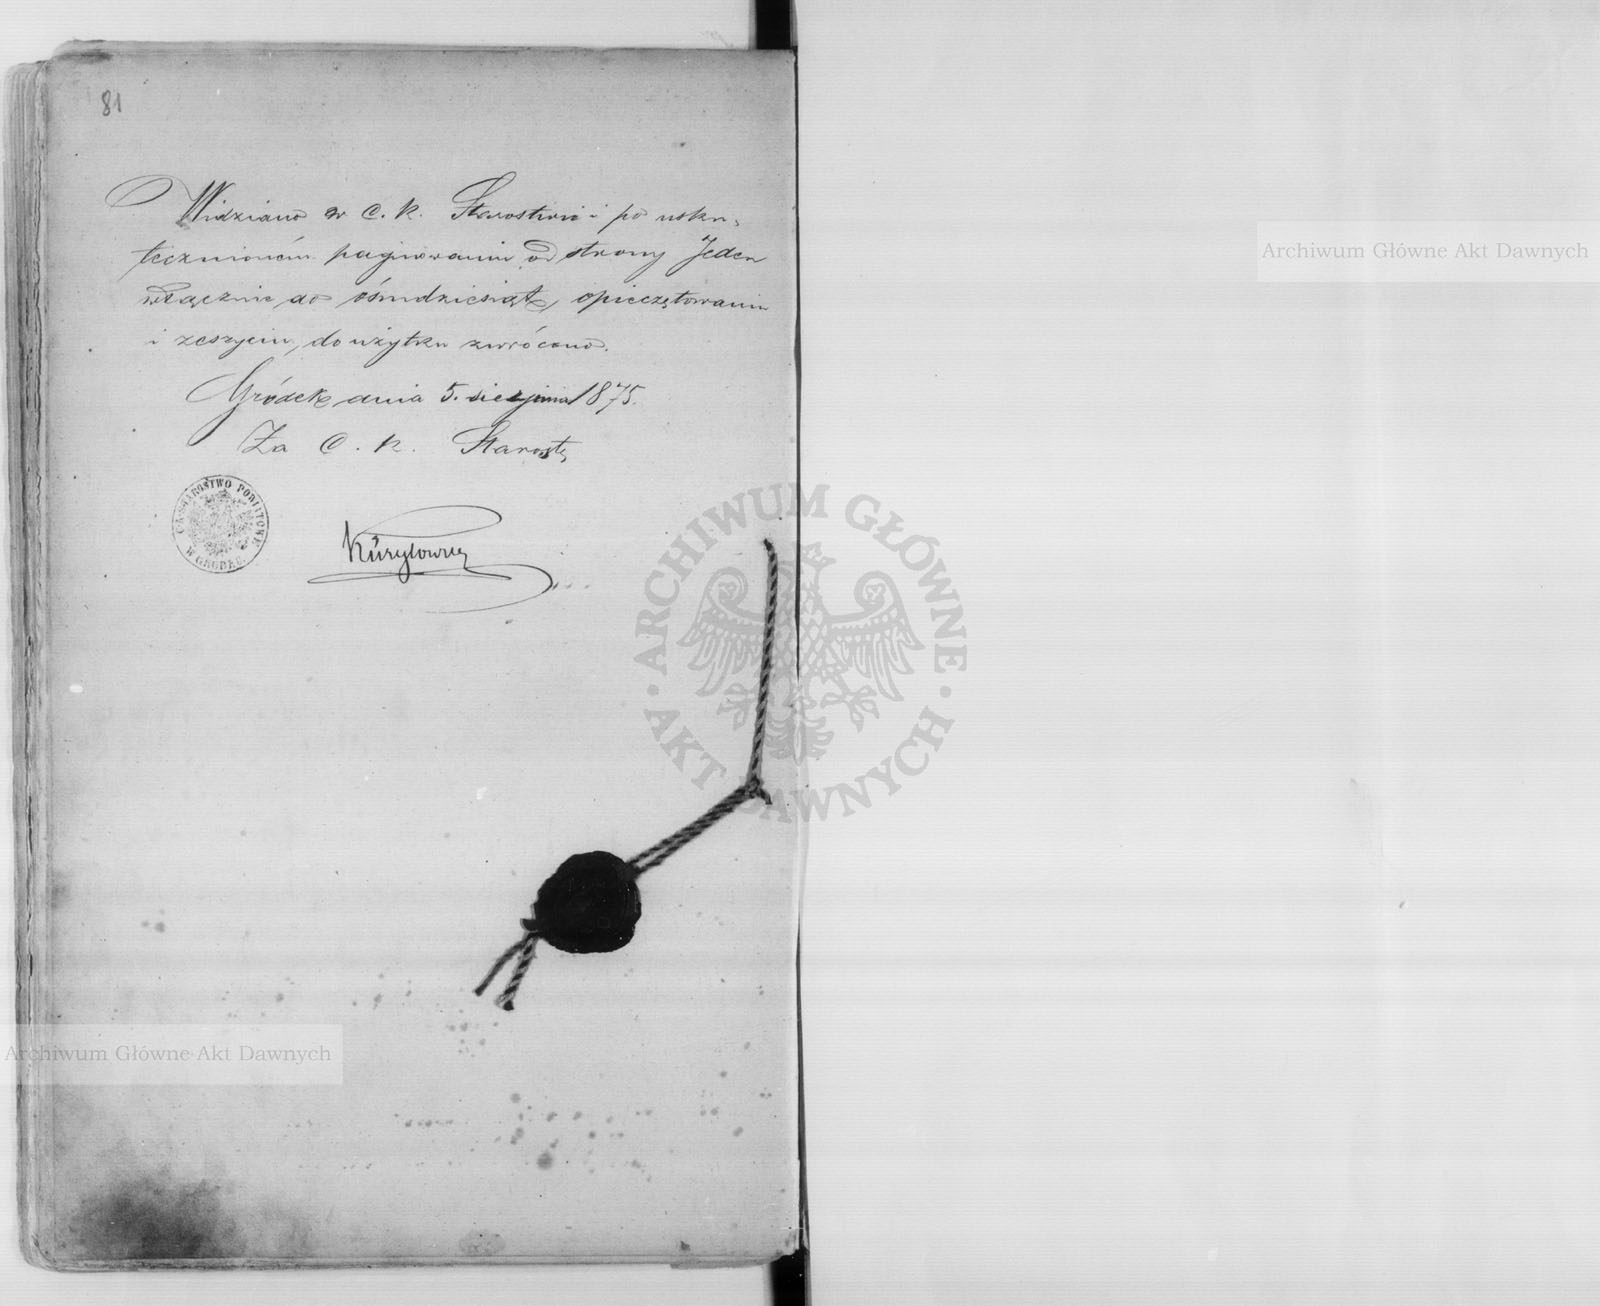 81
Widziano w C. K. Starostwie i po usku-
tecznioném paginowaniu od strony Jeden
włącznie do ośmdziesiąt, opieczętowaniu
i zeszyciu, do użytku zwrócono.
Gródek dnia 5. sierpnia 1875.
Za C. K. Starostę
C.K. STAROSTWO POWIATOWE
W GRÓDKU
Kuryłowicz
ARCHIWUM GŁÓWNE AKT DAWNYCH
Archiwum Główne Akt Dawnych
Archiwum Główne Akt Dawnych